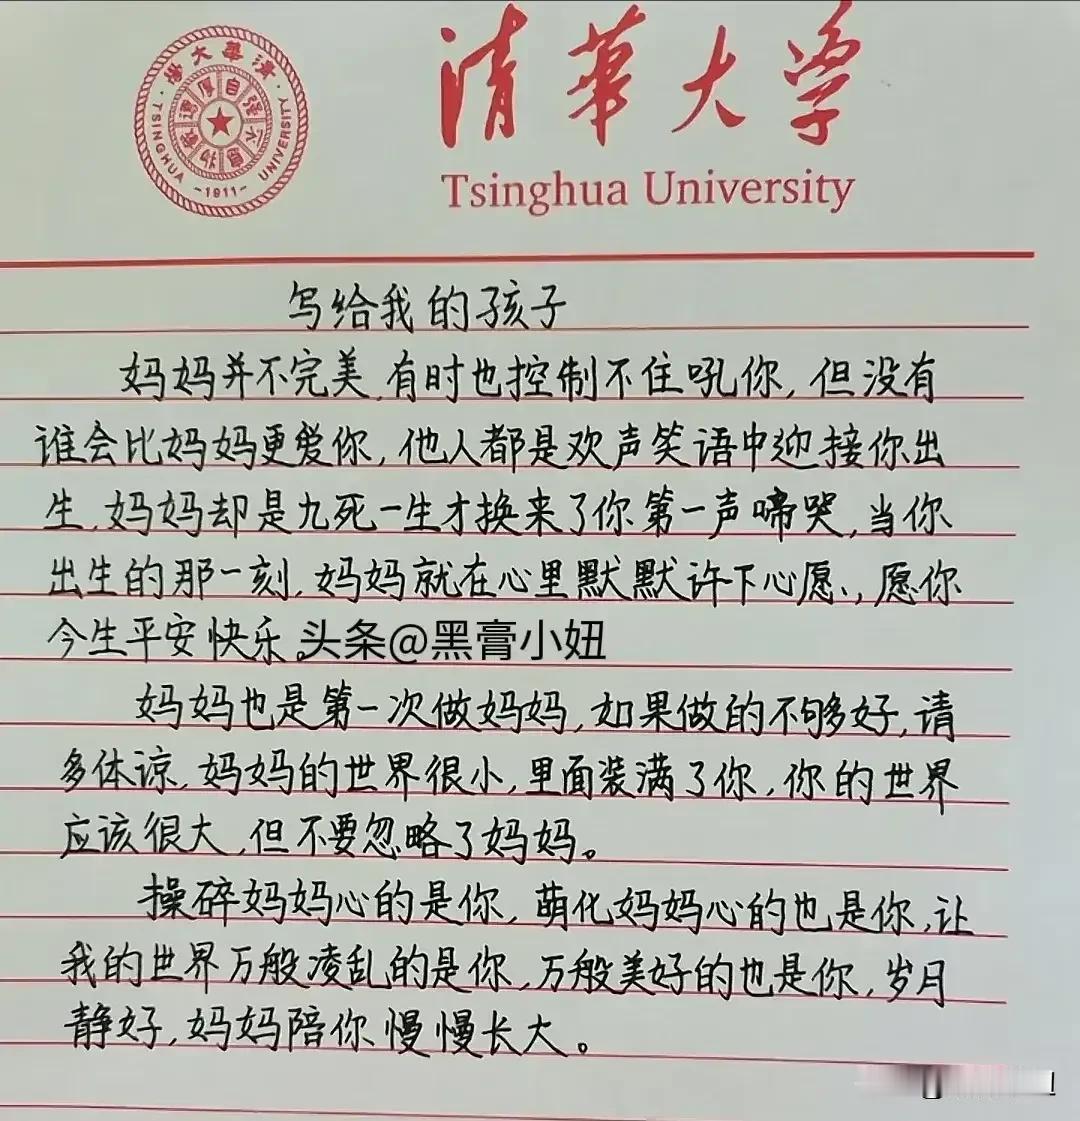 清華大学
Tsinghua University
清華大學
自强不息
厚德载物
TSINGHUA UNIVERSITY
-1911-
写给我的孩子
妈妈并不完美,有时也控制不住吼你,但没有
谁会比妈妈更爱你,他人都是欢声笑语中迎接你出
生,妈妈却是九死一生才换来了你第一声啼哭,当你
出生的那一刻,妈妈就在心里默默许下心愿,愿你
今生平安快乐。头条@黑膏小妞
妈妈也是第一次做妈妈,如果做的不够多好,请
多体谅,妈妈的世界很小,里面装满了你,你的世界
应该很大,但不要忽略了妈妈。
操碎妈妈心的是你,萌化妈妈心的也是你,让
我的世界万般凌乱的是你,万般美好的也是你,岁月
静好,妈妈陪你慢慢长大。